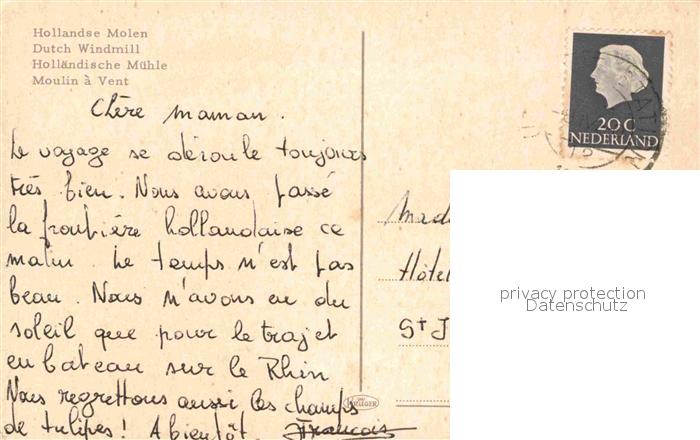 Hollandse Molen
Dutch Windmill
Holländische Mühle
Moulin à Vent
Chère maman.
Le voyage se déroule toujours
très bien. Nous avons passé
la frontière hollandaise ce
matin. Le temps n'est pas
beau. Nous n'avons eu du
soleil que pour le trajet
en bateau sur le Rhin
Nous regrettons aussi les champs
de tulipes! A bientôt. François
20C
NEDERLAND
Mad
Hôtel
St J
privacy protection
Datenschutz
KRÜGER